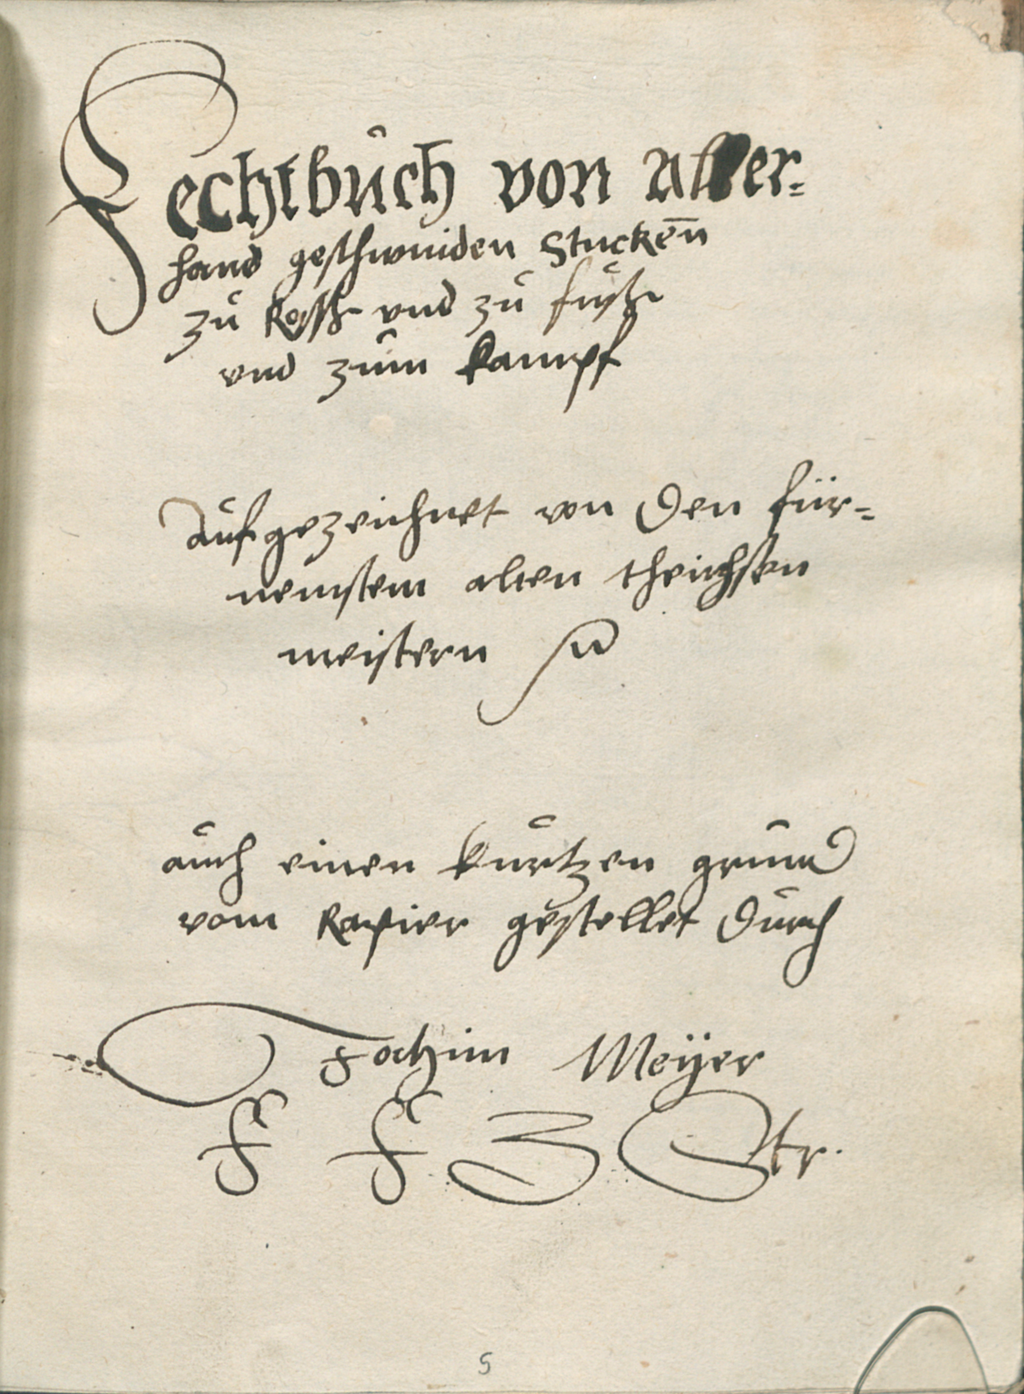 Fechtbůch von Aller=
hand geschwinden Stuckeñ
zů Rossz vnd zů fůsz
vnd zům Kampf
Aufgezeichnet von den für=
nemstem alten theichsten
meistern
auch einen kůrtzen grůnd
vom Rapier gestellet durch
Jochim Meÿer
F F Z Str.
5